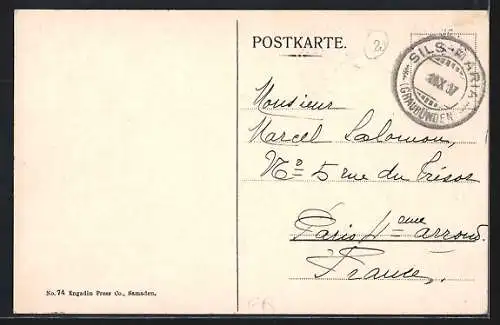 POSTKARTE.
2
SILS-MARIA
X.07
(GRAUBÜNDEN)
Monsieur
Marcel Salomon,
No 5 rue du Trésor
Paris 4ème arrond.
France.
No. 74 Engadin Press Co., Samaden.